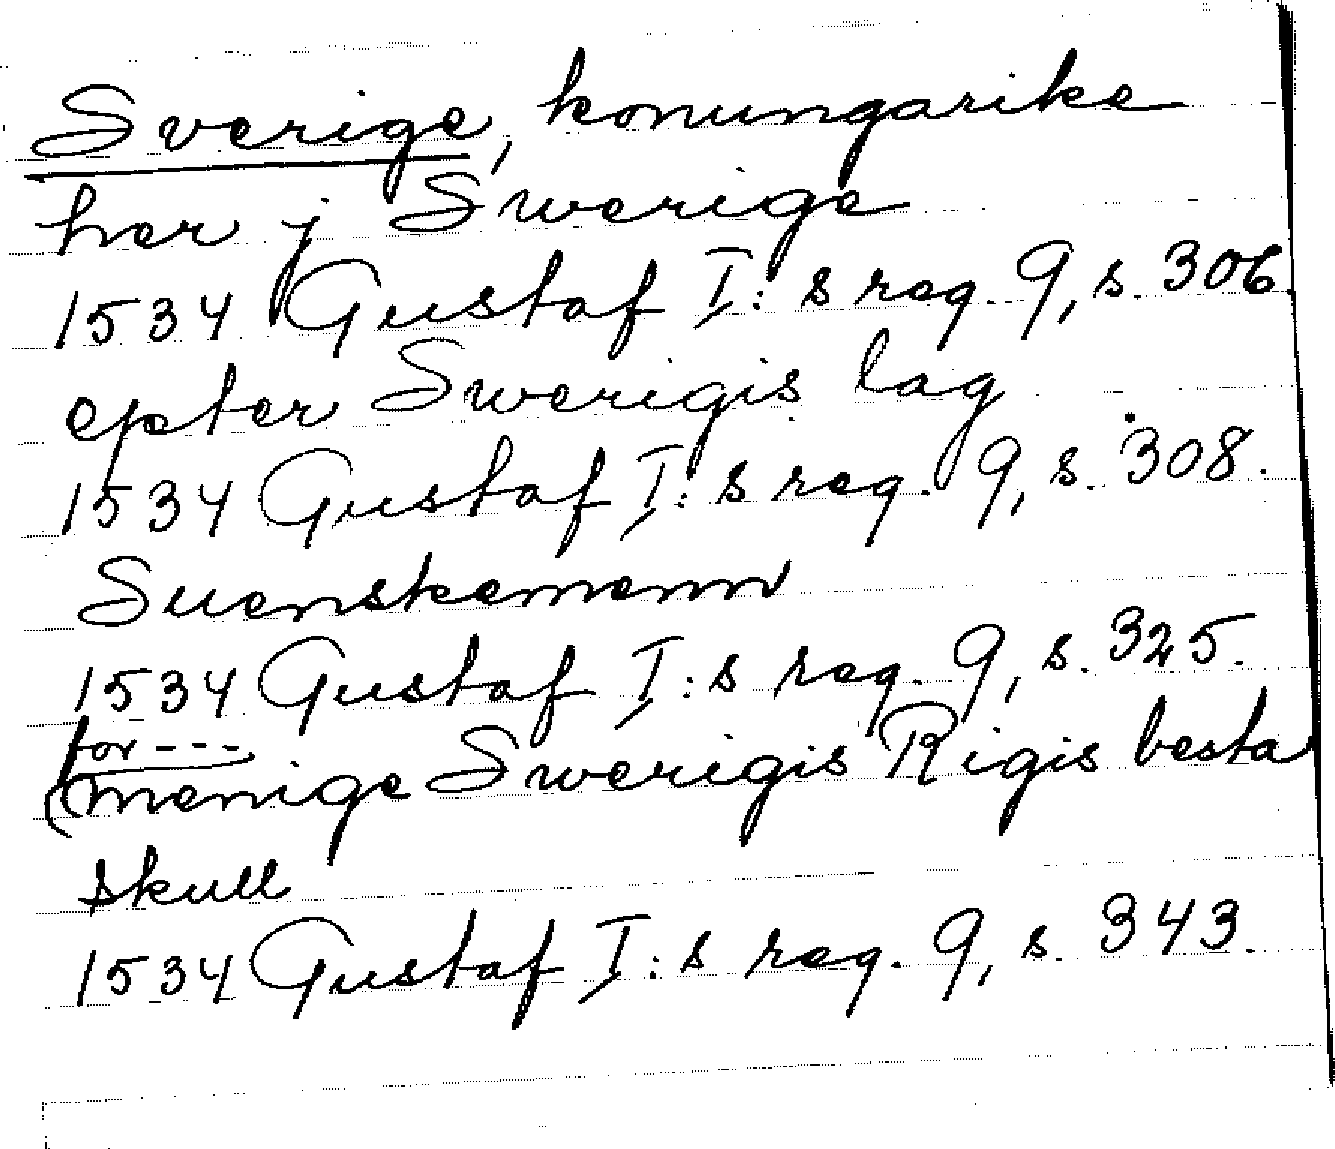 Sverige, konungarike
her j Swerige
1534 Gustaf I:s reg. 9, s. 306
epter Swerigis lag
1534 Gustaf I:s reg. 9, s. 308.
Suenskemenn
1534 Gustaf I:s reg. 9, s. 325.
for ---
(menige Swerigis Rigis besta
skull
1534 Gustaf I:s reg. 9, s. 343.